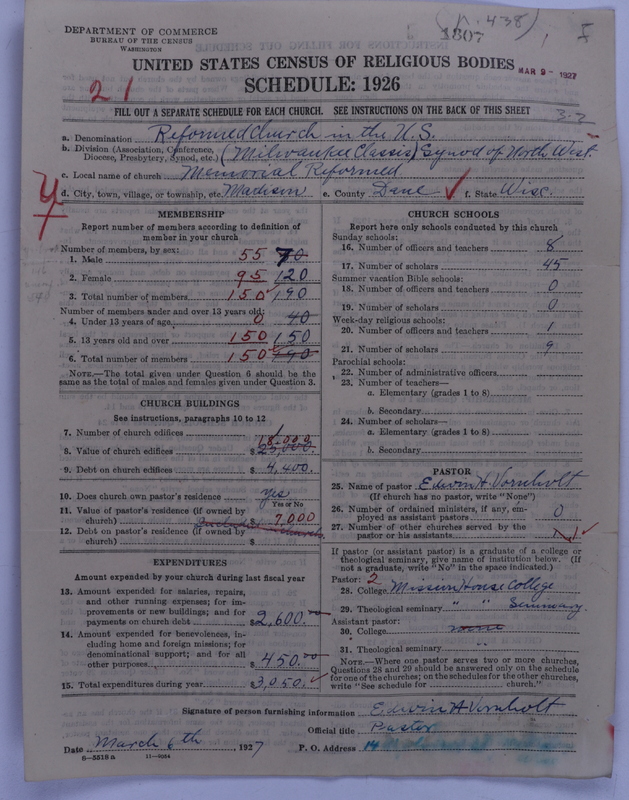 DEPARTMENT OF COMMERCE
BUREAU OF THE CENSUS
WASHINGTON
(p. 438)
1807
I
UNITED STATES CENSUS OF RELIGIOUS BODIES
MAR 9 - 1927
SCHEDULE: 1926
21
FILL OUT A SEPARATE SCHEDULE FOR EACH CHURCH. SEE INSTRUCTIONS ON THE BACK OF THIS SHEET
3-2
a. Denomination Reformed Church in the U.S.
b. Division (Association, Conference, Diocese, Presbytery, Synod, etc.) (Milwaukee Classis) Synod of North West.
c. Local name of church Memorial Reformed
d. City, town, village, or township, etc. Madison e. County Dane f. State Wisc.
MEMBERSHIP
Report number of members according to definition of
member in your church
Number of members, by sex:
1. Male 55 70
2. Female 95 120
3. Total number of members 150 190
Number of members under and over 13 years old:
4. Under 13 years of age 0 40
5. 13 years old and over 150 150
6. Total number of members 150 190
NOTE.—The total given under Question 6 should be
same as the total of males and females given under Question 3.
CHURCH BUILDINGS
See instructions, paragraphs 10 to 12
7. Number of church edifices 1
18,000
8. Value of church edifices $ 25,000.
9. Debt on church edifices $ 4,400.
10. Does church own pastor's residence yes
Yes or No
11. Value of pastor's residence (if owned by
church) $ 7,000
12. Debt on pastor's residence (if owned by
church) $
EXPENDITURES
Amount expended by your church during last fiscal year
13. Amount expended for salaries, repairs,
and other running expenses; for im-
provements or new buildings; and for
payments on church debt $ 2,600.
14. Amount expended for benevolences, in-
cluding home and foreign missions; for
denominational support; and for all
other purposes $ 450.00
15. Total expenditures during year $ 3,050.
CHURCH SCHOOLS
Report here only schools conducted by this church
Sunday schools:
16. Number of officers and teachers 8
17. Number of scholars 45
Summer vacation Bible schools:
18. Number of officers and teachers 0
19. Number of scholars 0
Week-day religious schools:
20. Number of officers and teachers 1
21. Number of scholars 9
Parochial schools:
22. Number of administrative officers
23. Number of teachers—
a. Elementary (grades 1 to 8)
b. Secondary
24. Number of scholars—
a. Elementary (grades 1 to 8)
b. Secondary
PASTOR
25. Name of pastor Edwin H. Vornholt
(If church has no pastor, write "None")
26. Number of ordained ministers, if any, em-
ployed as assistant pastors 0
27. Number of other churches served by the
pastor or his assistants
If pastor (or assistant pastor) is a graduate of a college or
theological seminary, give name of institution below. (If
not a graduate, write "No" in the space indicated.)
Pastor: 2
28. College Mission House College
29. Theological seminary " " Seminary
Assistant pastor:
30. College none
31. Theological seminary "
NOTE.—Where one pastor serves two or more churches,
Questions 28 and 29 should be answered only on the schedule
for one of the churches; on the schedules for the other churches,
write "See schedule for church."
Signature of person furnishing information Edwin H Vornholt
Official title Pastor
Date March 6th, 1927
P. O. Address 14
8—5518 a 11—9054